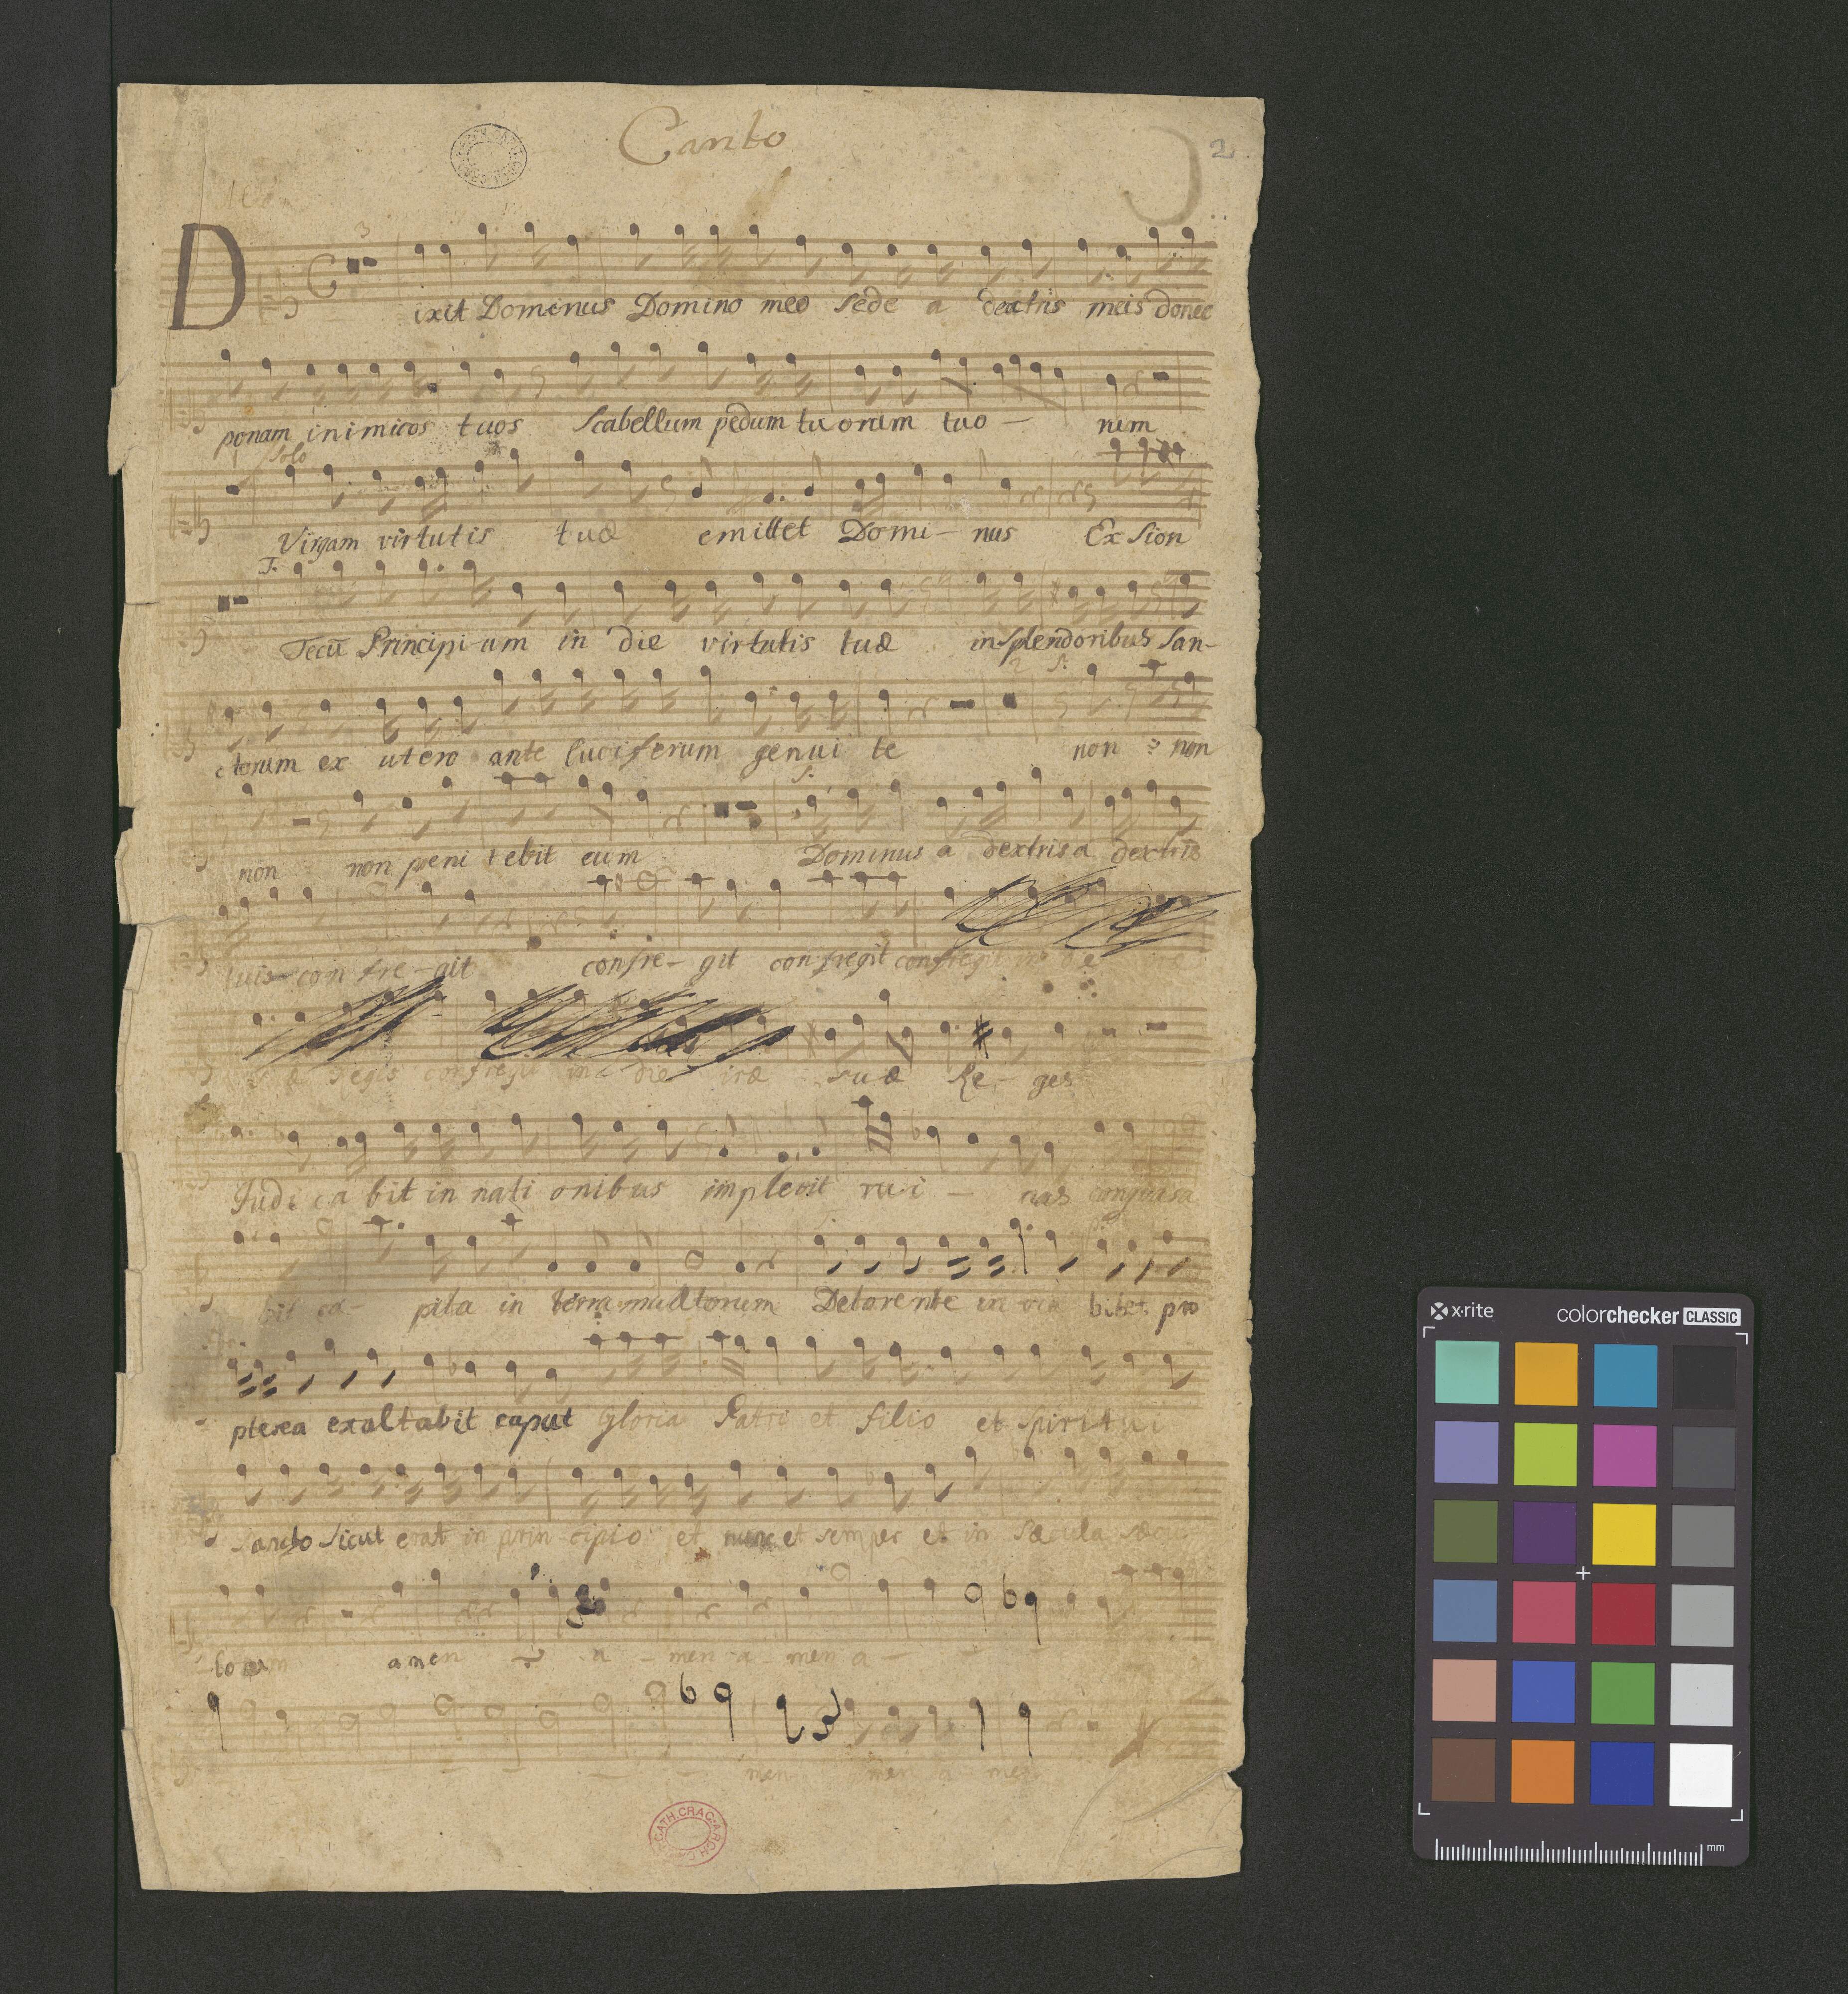 Canto
2
3
Dixit Dominus Domino meo sede a dextris meis donec
ponam inimicos tuos scabellum pedum tuorum tuo - rum
solo
Virgam virtutis tuæ emittet Domi - nus Ex Sion
T.
Tecū Principi-um in die virtutis tuæ in splendoribus San-
ctorum ex utero ante luciferum genui te non non
non non peni tebit eum Dominus a dextris a dextris
tuis con fre - git confre - git confregit confregit in die
regis confregit in die iræ suæ Re - ges
Judi ca bit in nati onibus implevit ru i - nas conquasa
bit ca - pita in terra multorum De torente in via bibet pro
pterea exaltabit caput Gloria Patri et filio et spiritui
sancto Sicut erat in prin cipio et nunc et semper et in sæcula sæcu
lorum amen a - men a - men a -
men men a men
CATH. CRAC. ARCH.
x·rite
colorchecker CLASSIC
mm